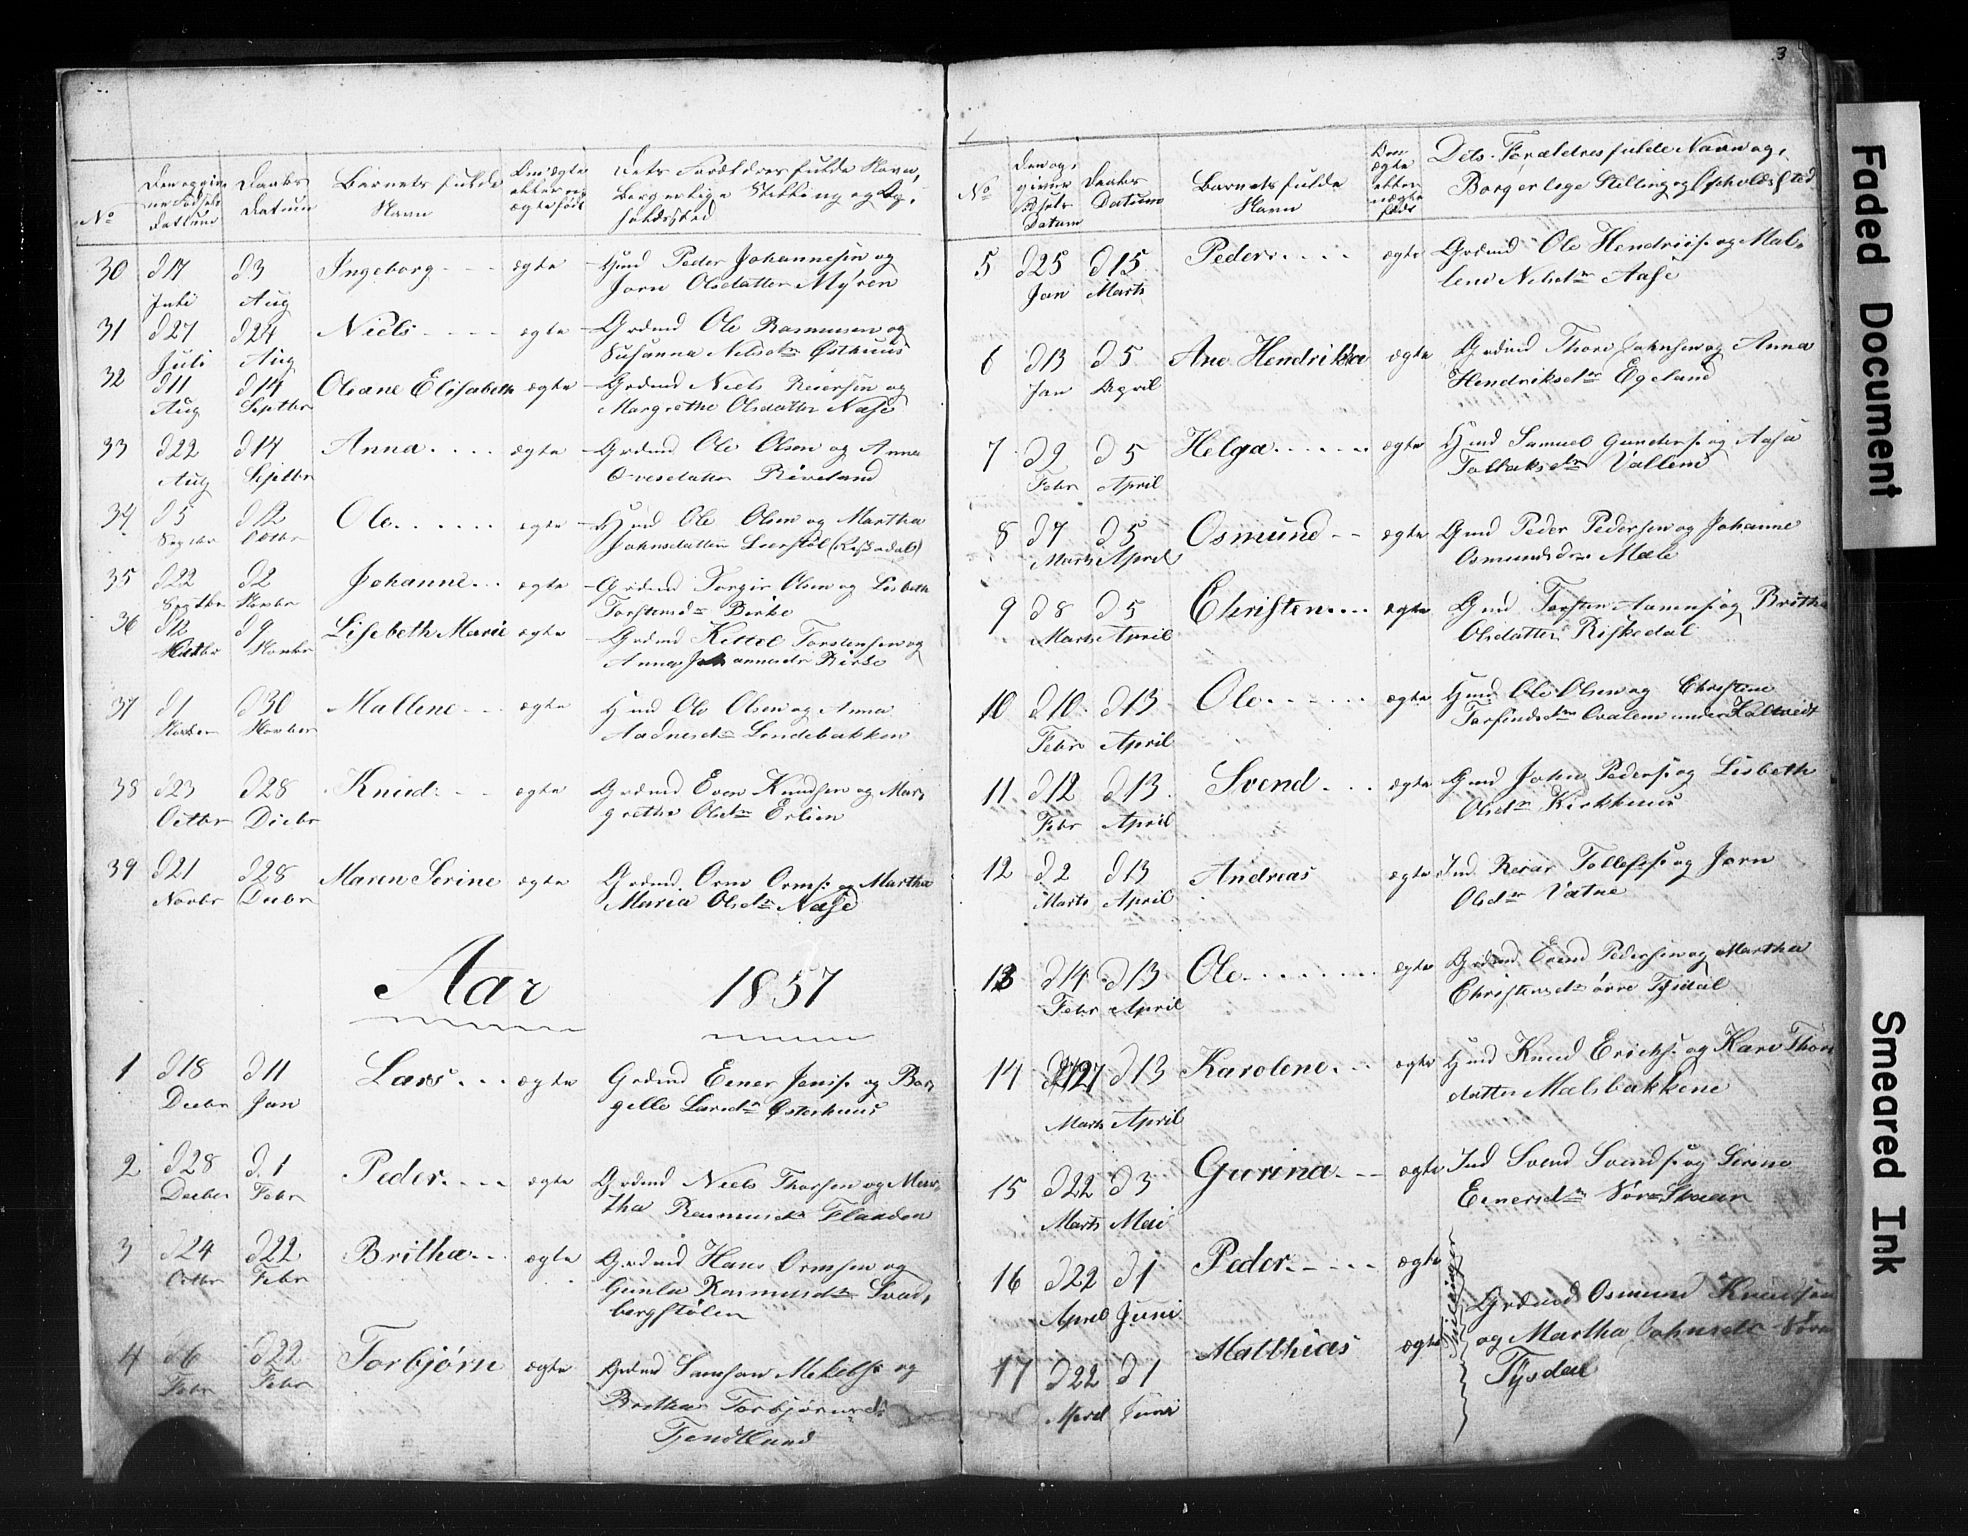 3
No
Den opgiv-
ne Fødsels
Datum
Daabs
Datum
Barnets fulde
Navn
Om ægte
eller u-
ægte født
Dets Forældres fulde Navn,
borgerlige Stilling og Op-
holdssted
30 d 17 Juli d 3 Aug Ingeborg ægte Hmd Peder Johannesen og
Jorn Olsdatter Myren
31 d 27 Juli d 24 Aug Niels ægte Grdmd Ole Rasmusen og
Susanna Nilsdtr Østhuus
32 d 11 Aug d 14 Septbr Oleane Elisabeth ægte Grdmd Niels Reiersen og
Margrethe Olsdatter Næse
33 d 22 Aug d 14 Septbr Anna ægte Grdmd Ole Olsen og Anna
Ovesdatter Riveland
34 d 5 Septbr d 12 Octbr Ole ægte Hmd Ole Olsen og Martha
Johnsdatter Leerstøl (Riskedal)
35 d 22 Septbr d 2 Novbr Johanne ægte Grdmd Torgir Olsen og Lisbeth
Torstensdr Birke
36 d 12 d 9 Novbr Lisebeth Marie ægte Grdmd Kittel Torstensen og
Anna Johannesdr Birke
37 d 1 d 30 Novbr Mallene ægte Hmd Ole Olsen og Anna
Aadnesdr Lindebakken
38 d 23 Octbr d 28 Decbr Knud ægte Grdmd Even Knudsen og Mar-
grethe Olsdtr Erlien
39 d 21 Novbr d 28 Decbr Maren Serine ægte Grdmd Orm Orms: og Martha
Maria Olsdtr Næse
Aar 1857
1 d 18 Decbr d 11 Jan Lars ægte Grdmd Einer Jonis: og Bor-
gille Larsdtr Østerhuus
2 d 28 Decbr d. 1 Febr Peder ægte Grdmd Niels Thorsen og Mar-
tha Rasmusdtr Fladden
3 d 24 Octbr d 22 Febr Britha ægte Grdmd Hans Ormsen og
Gunla Rasmusdtr Svad-
bergstølen
4 d 6 Febr d 22 Febr Torbjørn ægte Grdmd Samson Mikels: og
Britha Torbjørnsdr
Tjendtlund
No
Den op-
givne
Fødsels
Datum
Daabs
Datum
Barnets fulde
Navn
Om
ægte
eller
uægte
født
Dets Forældres fulde Navn og,
Borgerlege Stilling og Opholdssted
5 d 25 Jan d 15 Marts Peder ægte Grdmd Ole Hendriis: og Mal-
lene Nilsdtr Aase
6 d 13 Jan d 5 April Ane Hendrikke ægte Grdmd Thore Johnsen og Anna
Hendriksdtr Egeland
7 d 9 Febr d 5 April Helga ægte Hmd Samuel Gunders: og Aasa
Tollaksdtr Vallem
8 d 7 Marts d 5 April Osmund ægte Gmd Peder Pedersen og Johanne
Osmundsdr Mæle
9 d 8 Marts d 5 April Christen ægte Gmd Torsten Aanens: og Britha
Olsdatter Riskedal
10 d 10 Febr d 13 April Ole ægte Hmd Ole Olsen og Christine
Torfindsdtr Ovalem under Kaltveit
11 d 12 Febr d 13 April Svend ægte Gmd John Peders: og Lisbeth
Olsdtr Kirkhuus
12 d 2 Marts d 13 April Andreas ægte Ind Reiar Tollefs: og Jorn
Olsdtr Vatne
13 d 14 Febr d 13 April Ole ægte Grdmd Evend Pedersen og Martha
Christensdtr øvre Tysdal
14 d 27 Marts d 13 April Karolene ægte Hmd Knud Ericks: og Kari Thors
datter Malsbakkene
15 d 22 Marts d 3 Mai Gurina ægte Ind Svend Svends: og Serine
Einersdtr Sør Skaar
16 d 22 April d 1 Juni Peder ægte
17 d 22 April d 1 Juni Matthias ægte
Tvillinger
Grdmd Osmund Knudsen
og Martha Johnsdr
Tysdal
Faded Document
Smeared Ink